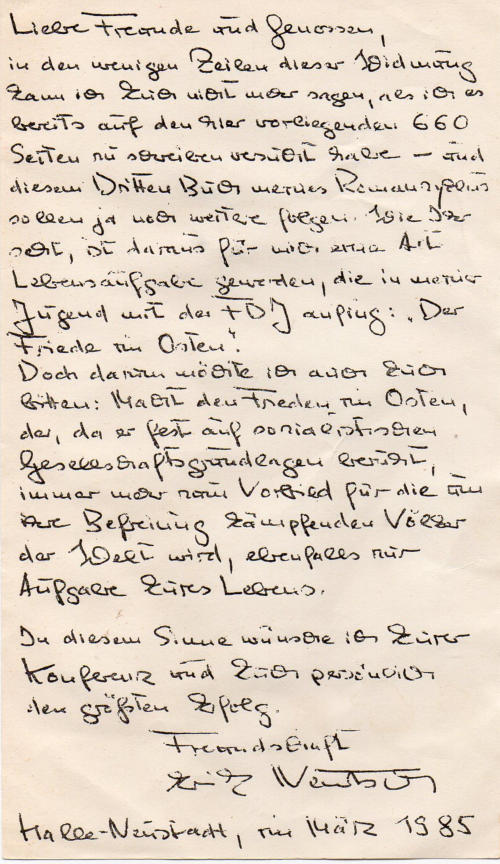 Liebe Freunde und Genossen,
in den wenigen Zeilen dieser Widmung
kann ich Euch nicht mehr sagen, als ich es
bereits auf den hier vorliegenden 660
Seiten zu schreiben versucht habe – und
diesem Dritten Buch meines Romanzyklus
sollen ja noch weitere folgen. Wie Ihr
seht, ist daraus für mich eine Art
Lebensaufgabe geworden, die in meiner
Jugend mit der FDJ anfing: „Der
Friede im Osten".
Doch darum möchte ich auch Euch
bitten: Macht den Frieden im Osten,
der, da er fest auf sozialistischen
Gesellschaftsgrundlagen beruht,
immer mehr zum Vorbild für die um
ihre Befreiung kämpfenden Völker
der Welt wird, ebenfalls zur
Aufgabe Eures Lebens.
In diesem Sinne wünsche ich Eurer
Konferenz und Euch persönlich
den größten Erfolg.
Freundschaft
Erik Neutsch
Halle-Neustadt, im März 1985